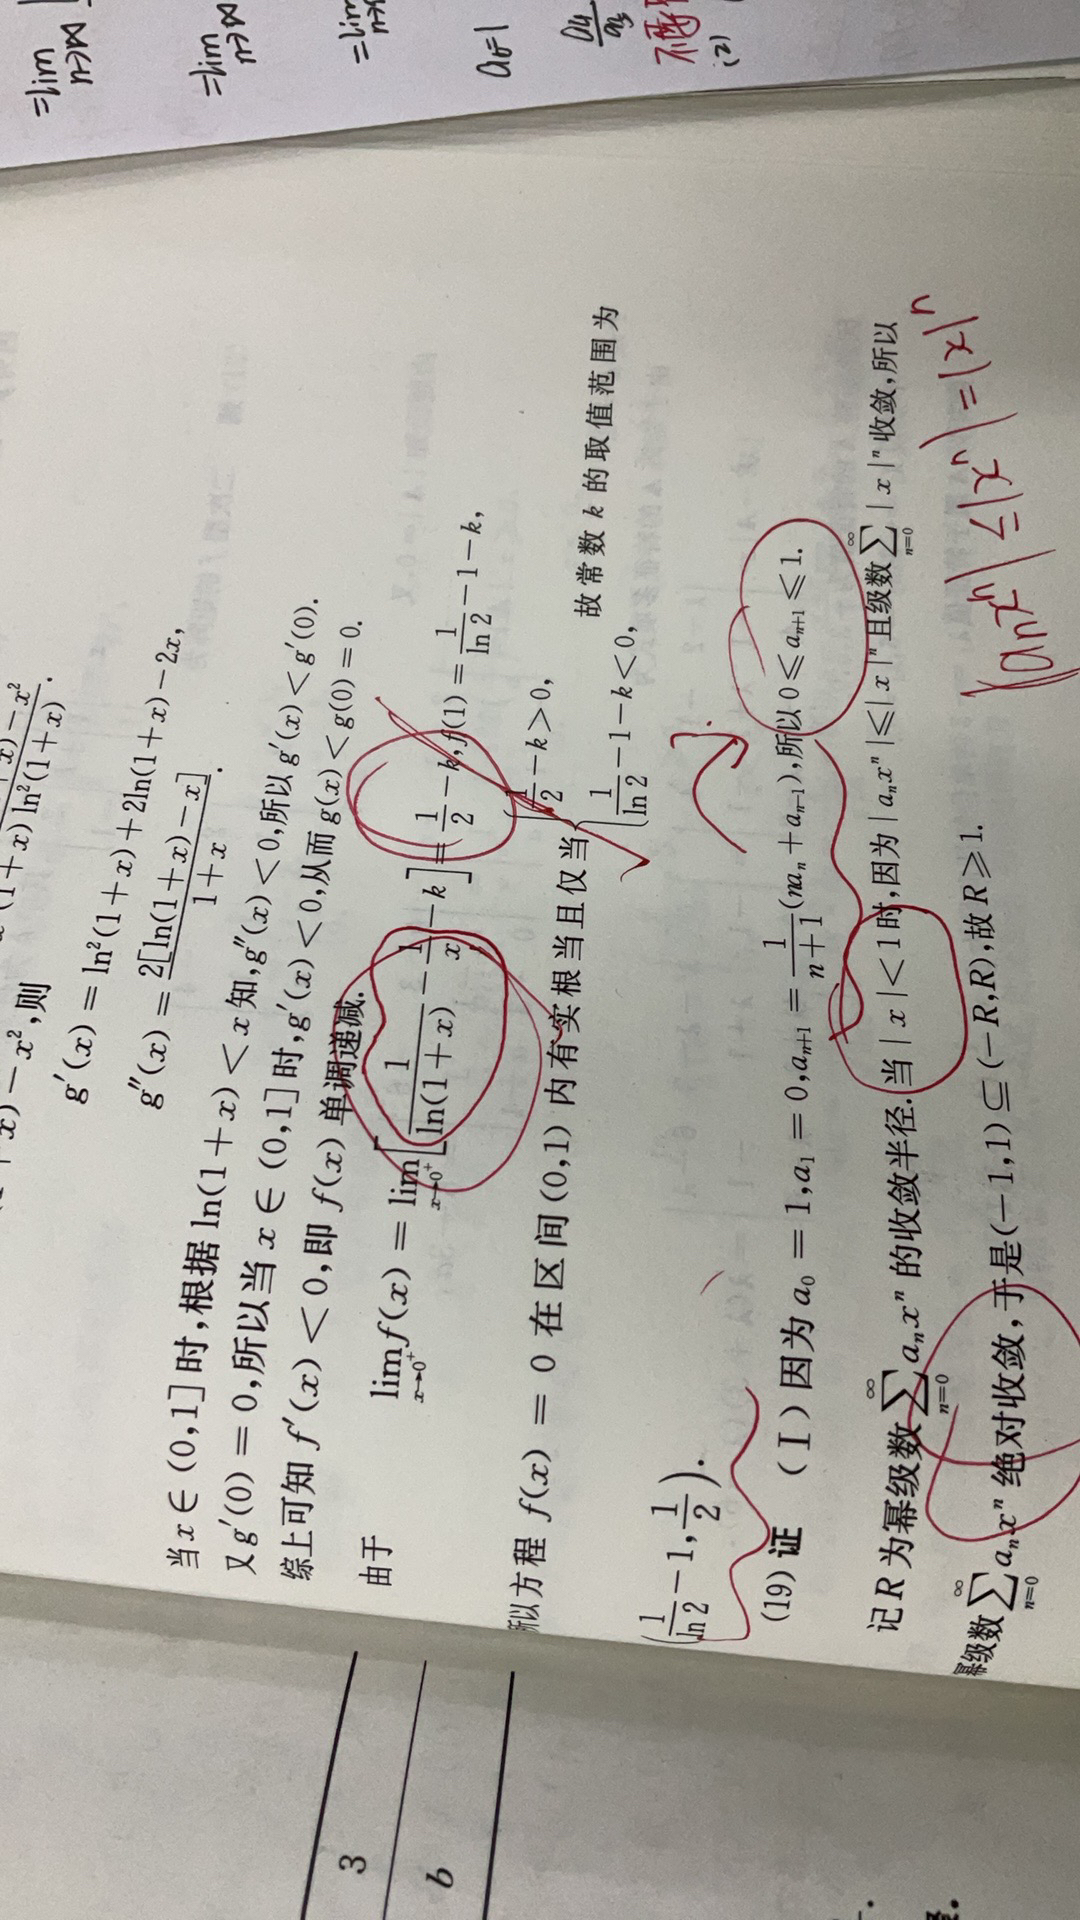 =lim n→∞
=lim n→∞
=lim n→∞
a₀=1
(2)
x)-x²,则
(1+x)ln²(1+x).
g′(x)=ln²(1+x)+2ln(1+x)-2x,
g″(x)=2[ln(1+x)-x]/(1+x).
当x∈(0,1]时,根据ln(1+x)<x知,g″(x)<0,所以g′(x)<g′(0).
又g′(0)=0,所以当x∈(0,1]时,g′(x)<0,从而g(x)<g(0)=0.
综上可知f′(x)<0,即f(x)单调递减.
由于
lim_{x→0⁺} f(x)=lim_{x→0⁺}[1/ln(1+x)-1/x-k]=1/2-k,f(1)=1/ln2-1-k,
所以方程f(x)=0在区间(0,1)内有实根当且仅当{1/2-k>0, 1/ln2-1-k<0, 故常数k的取值范围为
(1/ln2-1,1/2).
(19)证 (Ⅰ)因为a₀=1,a₁=0,aₙ₊₁=1/(n+1)(naₙ+aₙ₋₁),所以0≤aₙ₊₁≤1.
记R为幂级数∑_{n=0}^∞ aₙxⁿ的收敛半径.当|x|<1时,因为|aₙxⁿ|≤|x|ⁿ且级数∑_{n=0}^∞|x|ⁿ收敛,所以
幂级数∑_{n=0}^∞ aₙxⁿ绝对收敛,于是(-1,1)⊆(-R,R),故R≥1.
|aₙxⁿ|≤|xⁿ|=|x|ⁿ
3
b